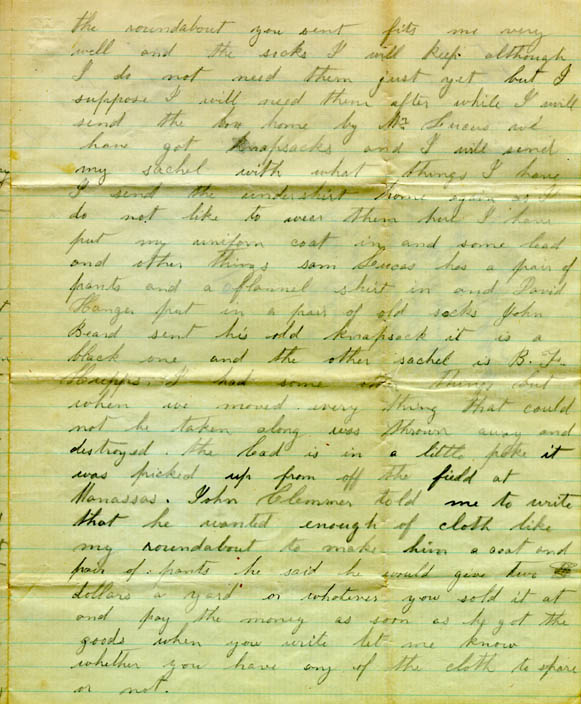 the roundabout you sent fits me very
well and the socks I will keep although
I do not need them just yet but I
suppose I will need them after while I will
send the box home by Mr Lucus we
have got knapsacks and I will send
my sachel with what things I have
I send the undershirt home again as I
do not like to wear them here I have
put my uniform coat in and some lead
and other things Sam Lucas has a pair of
pants and a flannel shirt in and David
Hanger put in a pair of old socks John
Beard sent his old knapsack it is a
black one and the other sachel is B. F.
Hupps. I had some other things but
when we moved every thing that could
not be taken along was thrown away and
destroyed. the lead is in a little poke it
was picked up from off the field at
Manassas. John Clemmer told me to write
that he wanted enough of cloth like
my roundabout to make him a coat and
pair of pants he said he would give two
dollars a yard or whatever you sold it at
and pay the money as soon as he got the
goods when you write let me know
whether you have any of the cloth to spare
or not.